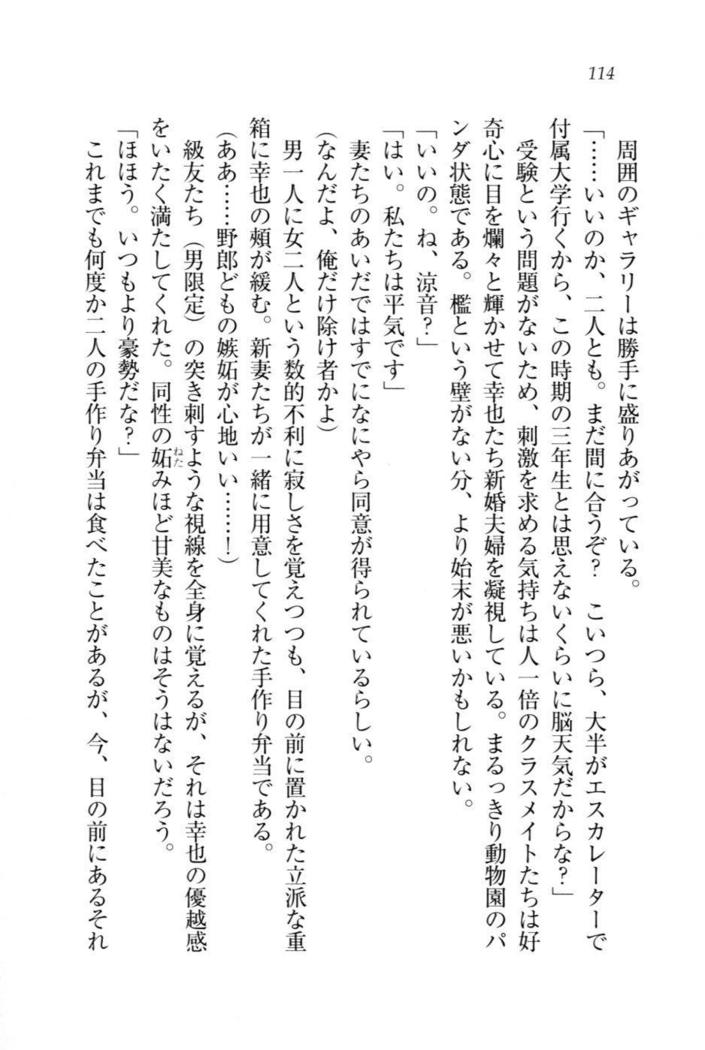 114
周囲のギャラリーは勝手に盛りあがっている。
「……いいのか、二人とも。まだ間に合うぞ？　こいつら、大半がエスカレーターで
付属大学行くから、この時期の三年生とは思えないくらいに脳天気だからな？」
受験という問題がないため、刺激を求める気持ちは人一倍のクラスメイトたちは好
奇心に目を爛々と輝かせて幸也たち新婚夫婦を凝視している。まるっきり動物園のパ
ンダ状態である。檻という壁がない分、より始末が悪いかもしれない。
「いいの。ね、涼音？」
「はい。私たちは平気です」
妻たちのあいだではすでになにやら同意が得られているらしい。
（なんだよ、俺だけ除け者かよ）
男一人に女二人という数的不利に寂しさを覚えつつも、目の前に置かれた立派な重
箱に幸也の頬が緩む。新妻たちが一緒に用意してくれた手作り弁当である。
（ああ……野郎どもの嫉妬が心地いい……！）
級友たち（男限定）の突き刺すような視線を全身に覚えるが、それは幸也の優越感
をいたく満たしてくれた。同性の妬みほど甘美なものはそうはないだろう。
ねた
「ほほう。いつもより豪勢だな？」
これまでも何度か二人の手作り弁当は食べたことがあるが、今、目の前にあるそれ